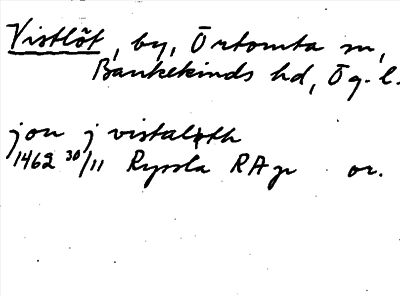 Vistlöt, by, Örtomta sn,
Bankekinds hd, Ög. l.
jon j vistaløth
1462 30/11 Ryssla RAp or.